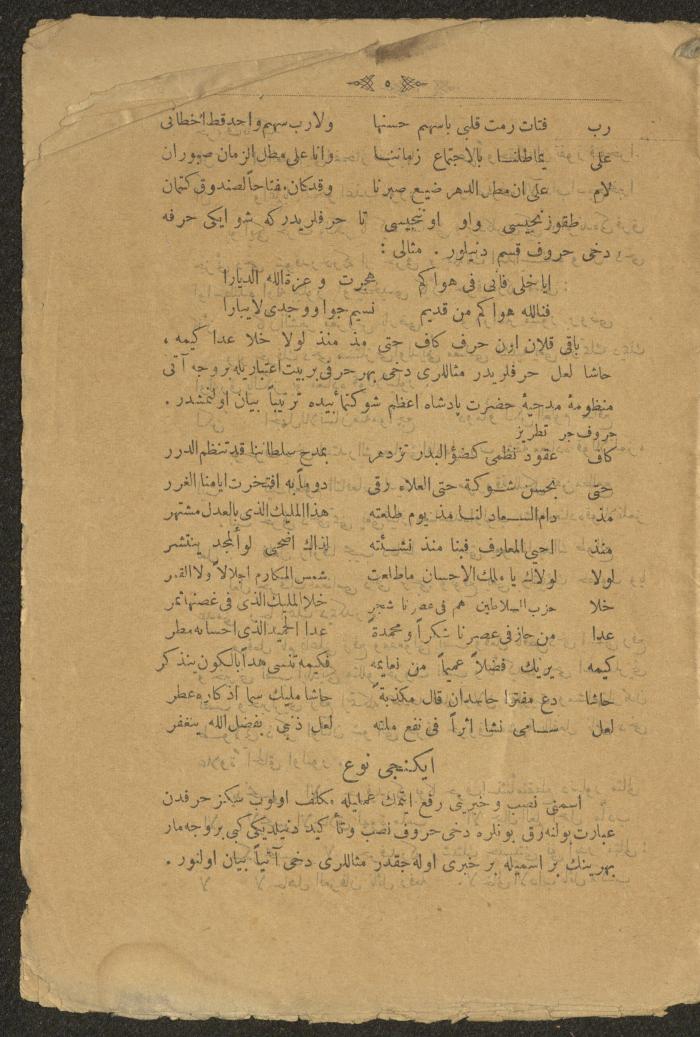 ٥
رب فتات رمت قلبى باسهم حسنها ولا رب سهم واحد قط اخطانى
على يماطلنا بالاجتماع زماننا وانا على مطل الزمان صبوران
لام على ان مطل الدهر ضيع صبرنا وقد كان مفتاحاً لصندوق كتمان
طقوزنجيسى واو اوننجيسى تا حرفلريدركه شو ايكى حرفه
دخى حروف قسم دنيلور . مثالى :
اياخلى فانى فى هواكم هجرت وعزة الله الديارا
فتالله هواكم من قديم نسيم جوا ووجدى لا يبارا
باقى قلان اون حرف كاف حتى مذ منذ لولا خلا عدا كيمه ،
حاشا لعل حرفلريدر مثاللرى دخى بهر حرفى بر بيت اعتباريله بروجه آتى
منظومهٔ مدحيهٔ حضرت پادشاه اعظم شوكتمأبيده ترتيباً بيان اولنمشدر .
حروف جر تطريز
كاف عقود نظمى كضؤ البدر تزدهر بمدح سلطاننا قد تنظم الدرر
حتى بحسن شوكة حتى العلاء رقى دوماً به افتخرت ايامنا الغرر
مذ دام السعاد لنا مذ يوم طلعته هذا المليك الذى بالعدل مشتهر
منذ احيى المعارف فينا منذ نشئته لذاك اضحى لوألمجد ينتشر
لولا لولاك يا ملك الاحسان ماطلعت شمس المكارم اجلالاً ولا القمر
خلا حزب السلاطين هم فى عصرنا شجر خلا المليك الذى فى غصنها ثمر
عدا من حاز فى عصرنا شكراً ومحمدة عدا الحميد الذى احسانه مطر
كيمه يريك فضلاً عميماً من نعايمه فكيمه تنسى هدأ بالكون يتذكر
حاشا دع مفترا جاسدان قال مكذبةً حاشا مليك سما اذكاره عطر
لعل سامى نشا اثراً فى نفع ملته لعل ذنبى بفضل الله يغتفر
ايكنجى نوع
اسمنى نصب و خبرينى رفع ايتمك عمليله مكلف اولوب سكز حرفدن
عبارت بولنه رق بونلره دخى حروف نصب وتأكيد دنيلديكى كبى بروجه مار
بهرينك بر اسميله بر خبرى اوله جقدر مثاللرى دخى آتياً بيان اولنور .